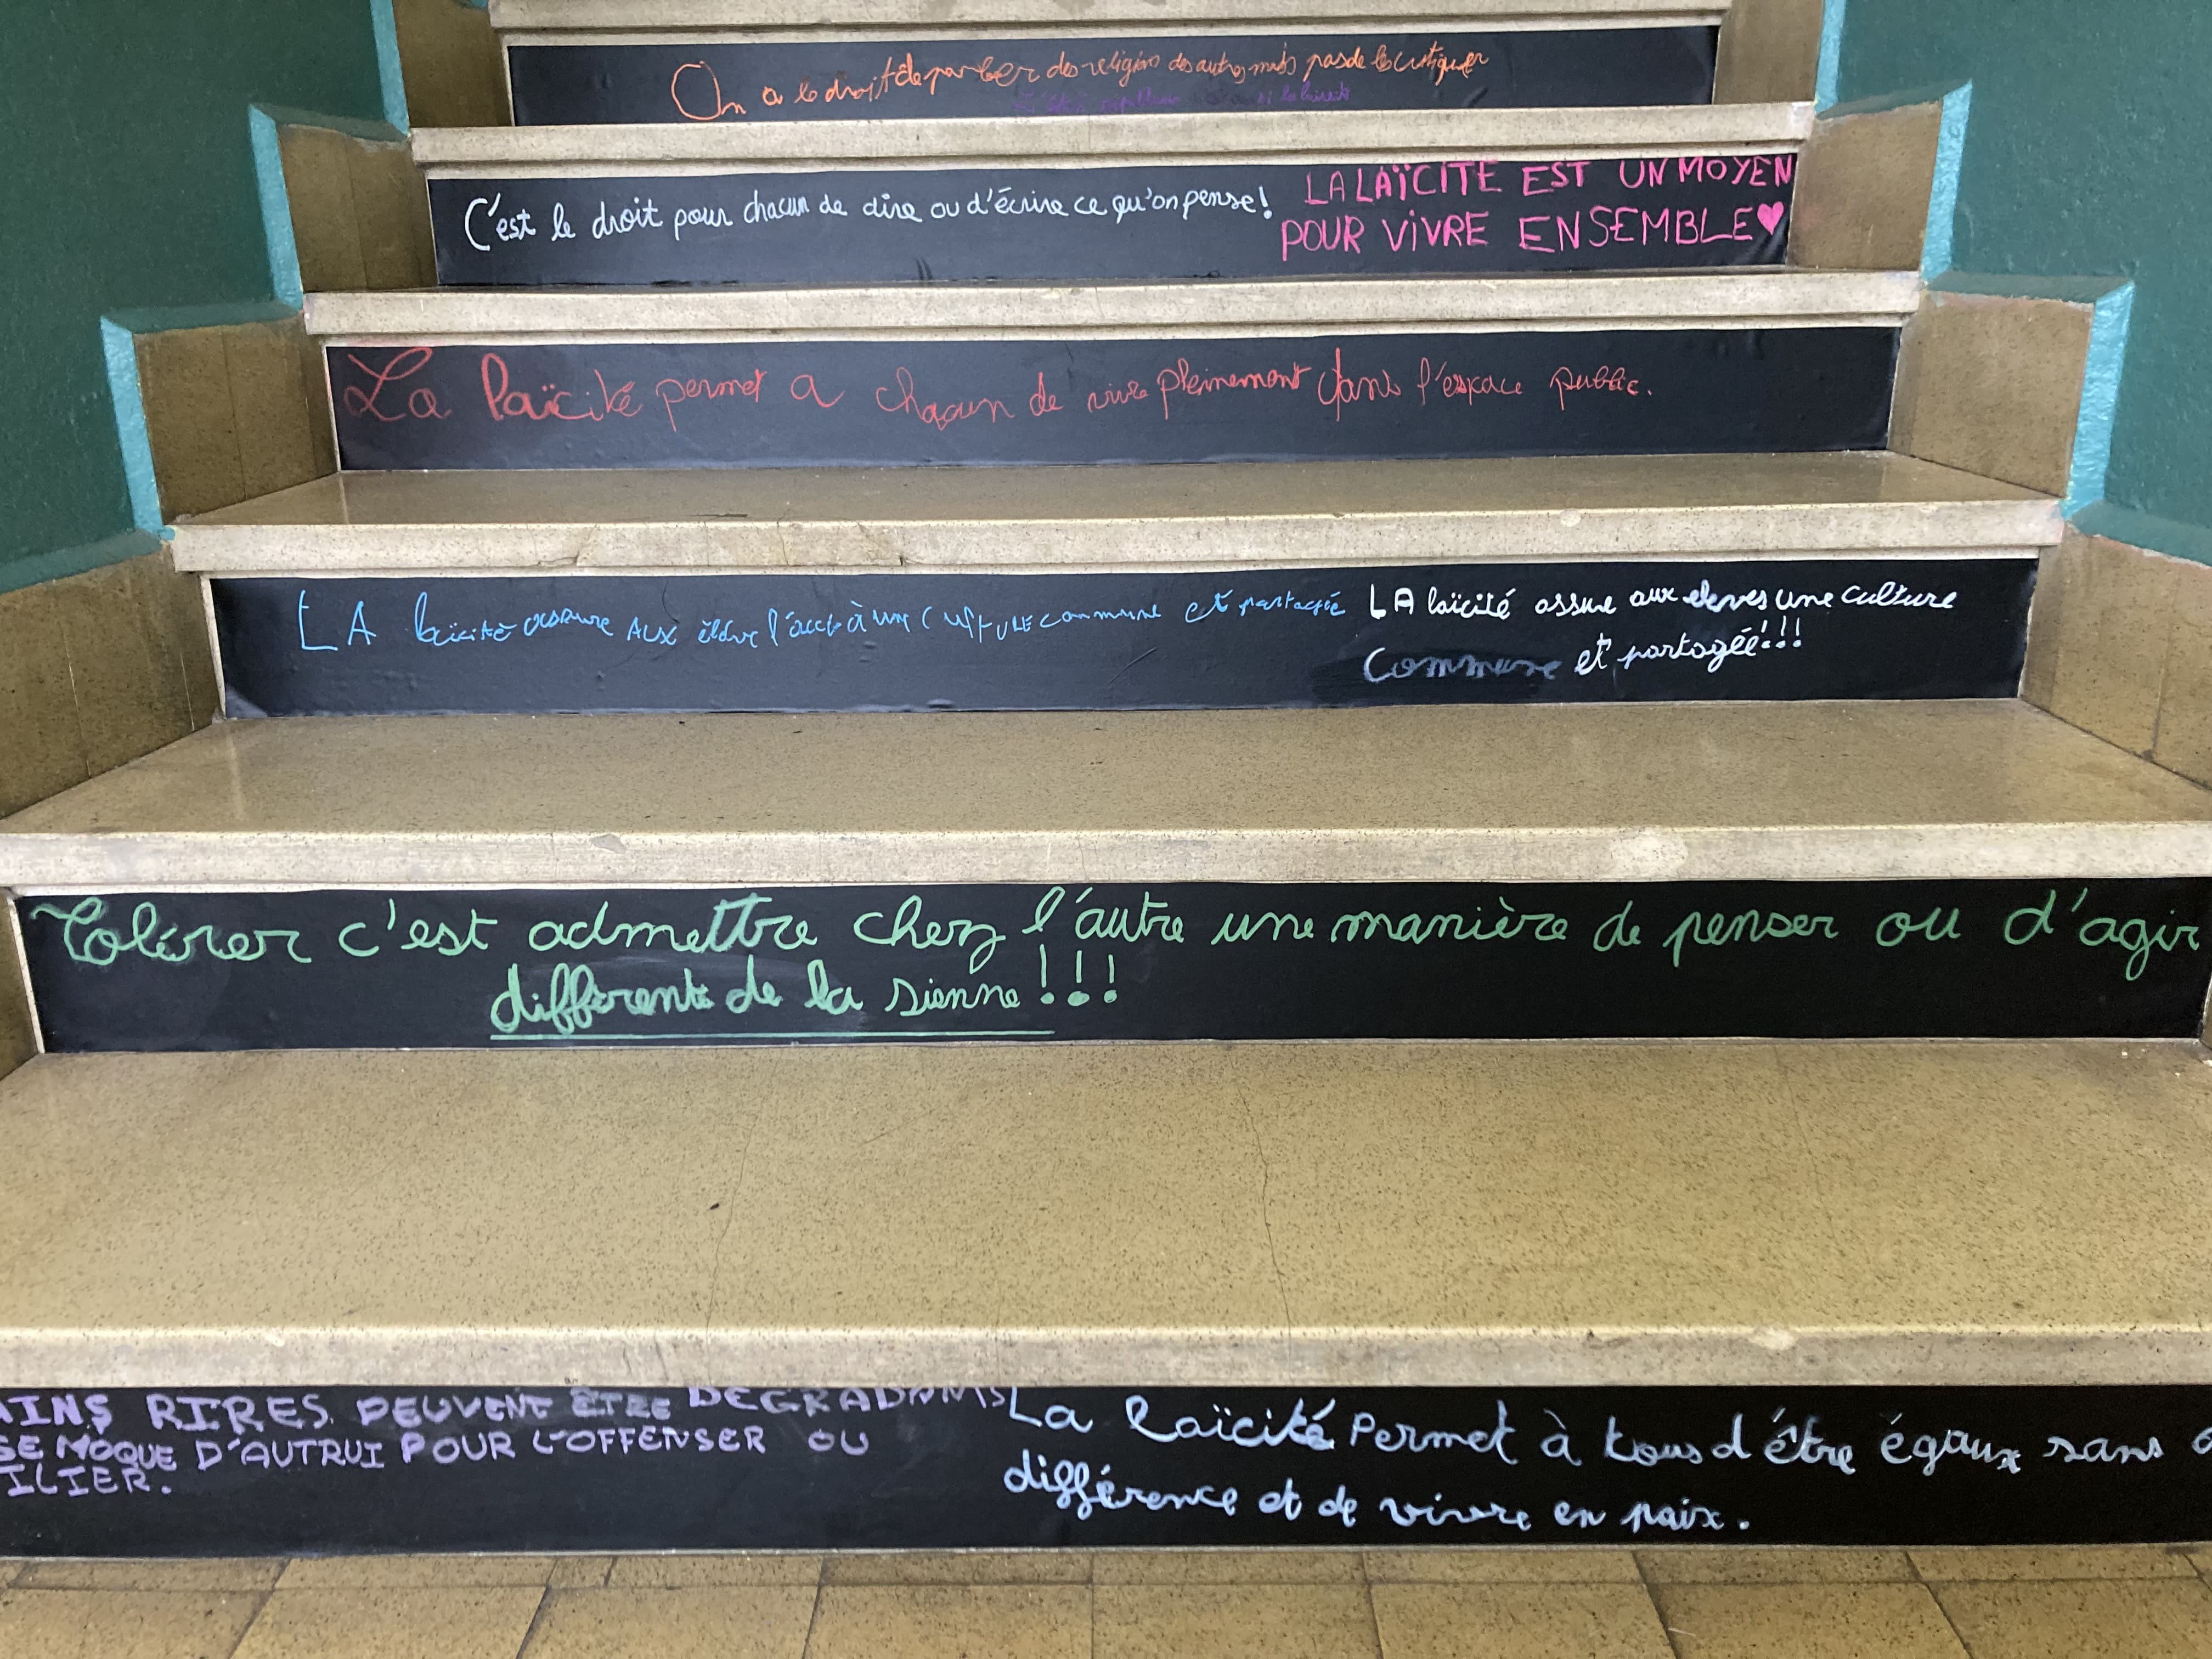 On a le droit de parler des religions des autres mais pas de les critiquer
si la laïcité
C'est le droit pour chacun de dire ou d'écrire ce qu'on pense!
LA LAÏCITÉ EST UN MOYEN
POUR VIVRE ENSEMBLE♥
La laïcité permet a chacun de vivre pleinement dans l'espace public.
LA laïcité assure AUX élève l'accè à une CULTURE commune et partagée
LA laïcité assure aux eleves une culture
Commune et partagée!!!
Tolérer c'est admettre chez l'autre une manière de penser ou d'agir
différente de la sienne!!!
AINS RIRES PEUVENT ÊTRE DEGRADANTS
SE MOQUE D'AUTRUI POUR L'OFFENSER OU
ILIER.
La laïcité Permet à tous d'être égaux sans
différence et de vivre en paix.